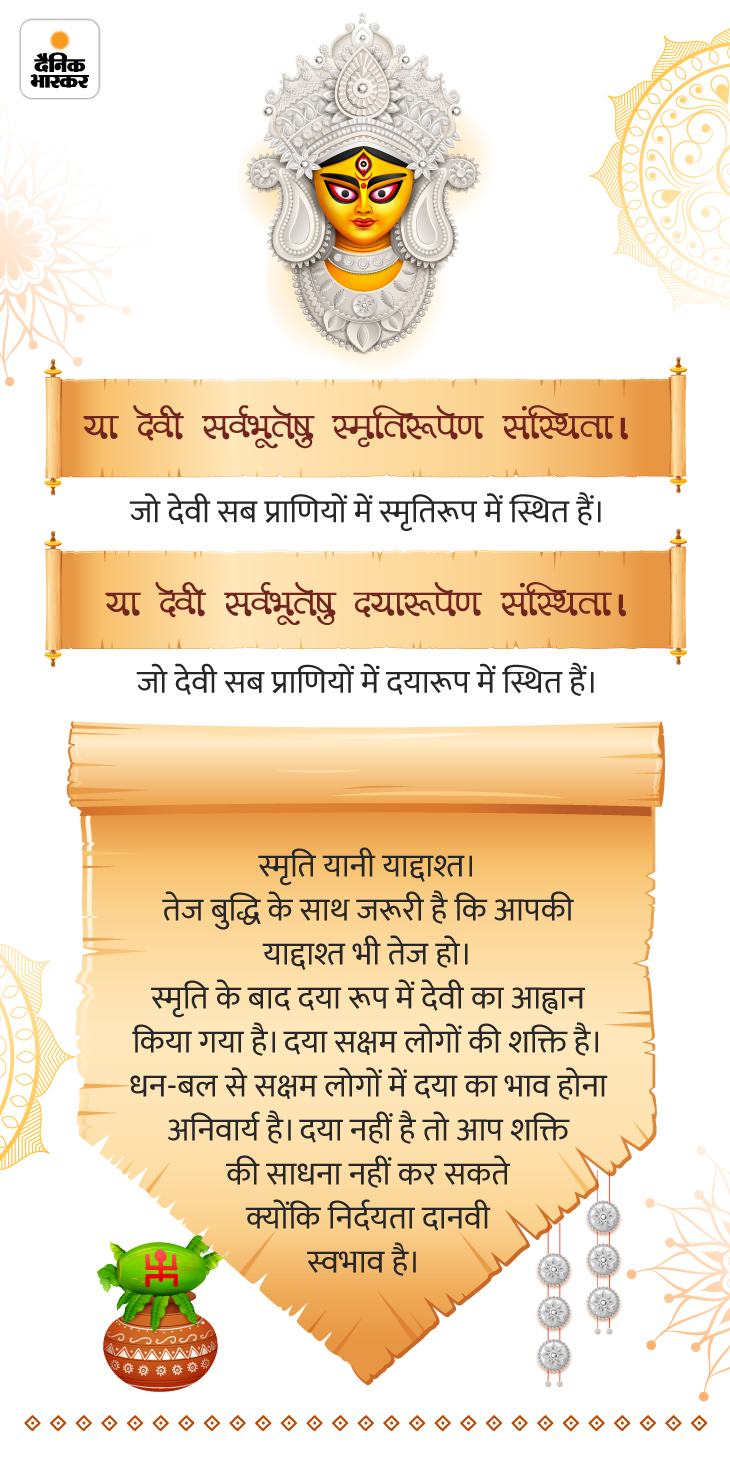 दैनिक
भास्कर
या देवी सर्वभूतेषु स्मृतिरूपेण संस्थिता।
जो देवी सब प्राणियों में स्मृतिरूप में स्थित हैं।
या देवी सर्वभूतेषु दयारूपेण संस्थिता।
जो देवी सब प्राणियों में दयारूप में स्थित हैं।
स्मृति यानी याद्दाश्त।
तेज बुद्धि के साथ जरूरी है कि आपकी
याद्दाश्त भी तेज हो।
स्मृति के बाद दया रूप में देवी का आह्वान
किया गया है। दया सक्षम लोगों की शक्ति है।
धन-बल से सक्षम लोगों में दया का भाव होना
अनिवार्य है। दया नहीं है तो आप शक्ति
की साधना नहीं कर सकते
क्योंकि निर्दयता दानवी
स्वभाव है।